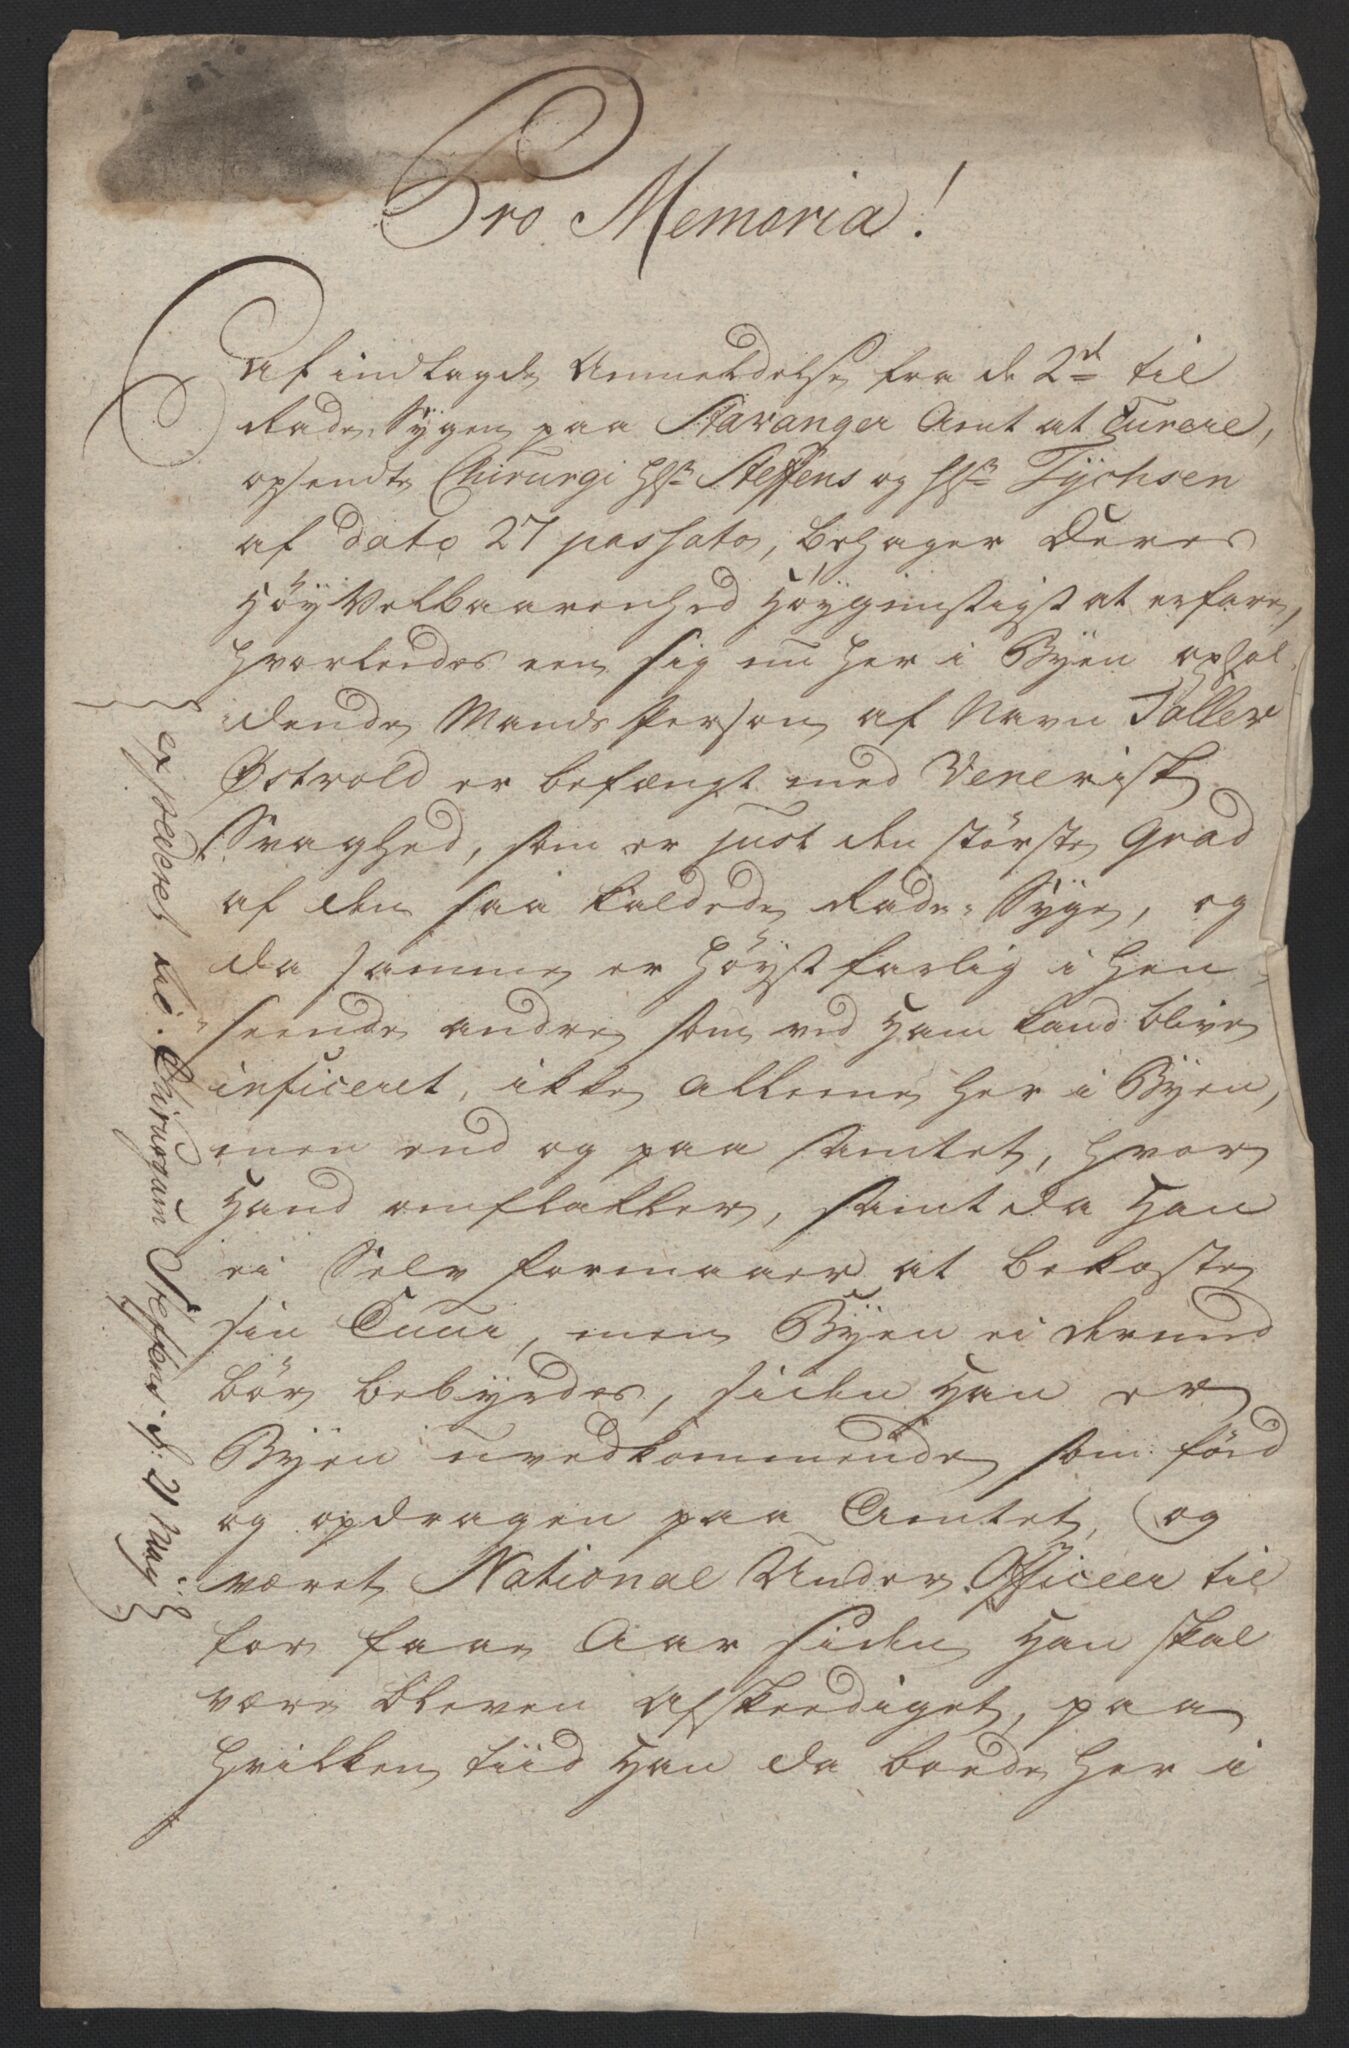 Pro Memoria!
Af indlagde Anmeldelse fra de 2de til
Rade Sygen paa Stavanger Amt at Curere,
opsendte Chirurgi Hr. Steffens og Hr. Tÿchsen
af dato 27 passato, behager Deres
HöyVelbaarenhed Höygunstigst at erfare,
hvorledes een sig nu her i Bÿen ophol
dende Mands Person af Navn Toller
Østvold er befængt med Venerisk
Svaghed, som er just den störste Grad
af den saa kaldede Rade-Sÿge, og
da samme er höyst farlig i Hen
seende andre som ved Ham kand blive
inficeret, ikke alleene her i Bÿen,
men end og paa Amtet, hvor
Hand omflakker, samt da Han
ei Selv formaaer at bekoste
sin Cuur, men Bÿen ei derund
bör bebyrdes, siden Han er
Bÿen uvedkommende som föd
og opdragen paa Amtet, og
været National Under Officeer til
for faae Aar siden Han skal
være bleven Afskeediget, paa
hvilken tiid Han da boede her i
expederet til Chirurgum Steffens d: 2 Maij